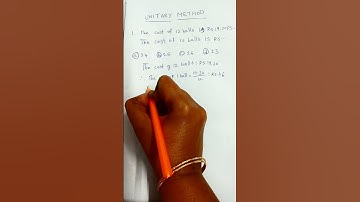 UNITARY METHOD
1. The cost of 12 balls is Rs.19.20PS.
The cost of 15 balls is RS.
24 25 26 23
The cost of 12 balls = RS.19.20
∴ The 1 ball = 19.20 / 12 = RS.1.6